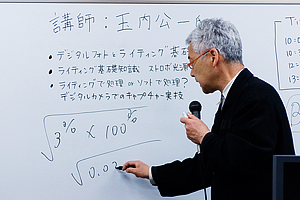 講師:玉内公一
・デジタルフォトとライティング基礎
・ライティング基礎知識 ストロボ光源
・ライティングで処理 or ソフトで処理?
デジタルカメラでのキャプチャー実技
3% × 100%
0.03
10:
12: